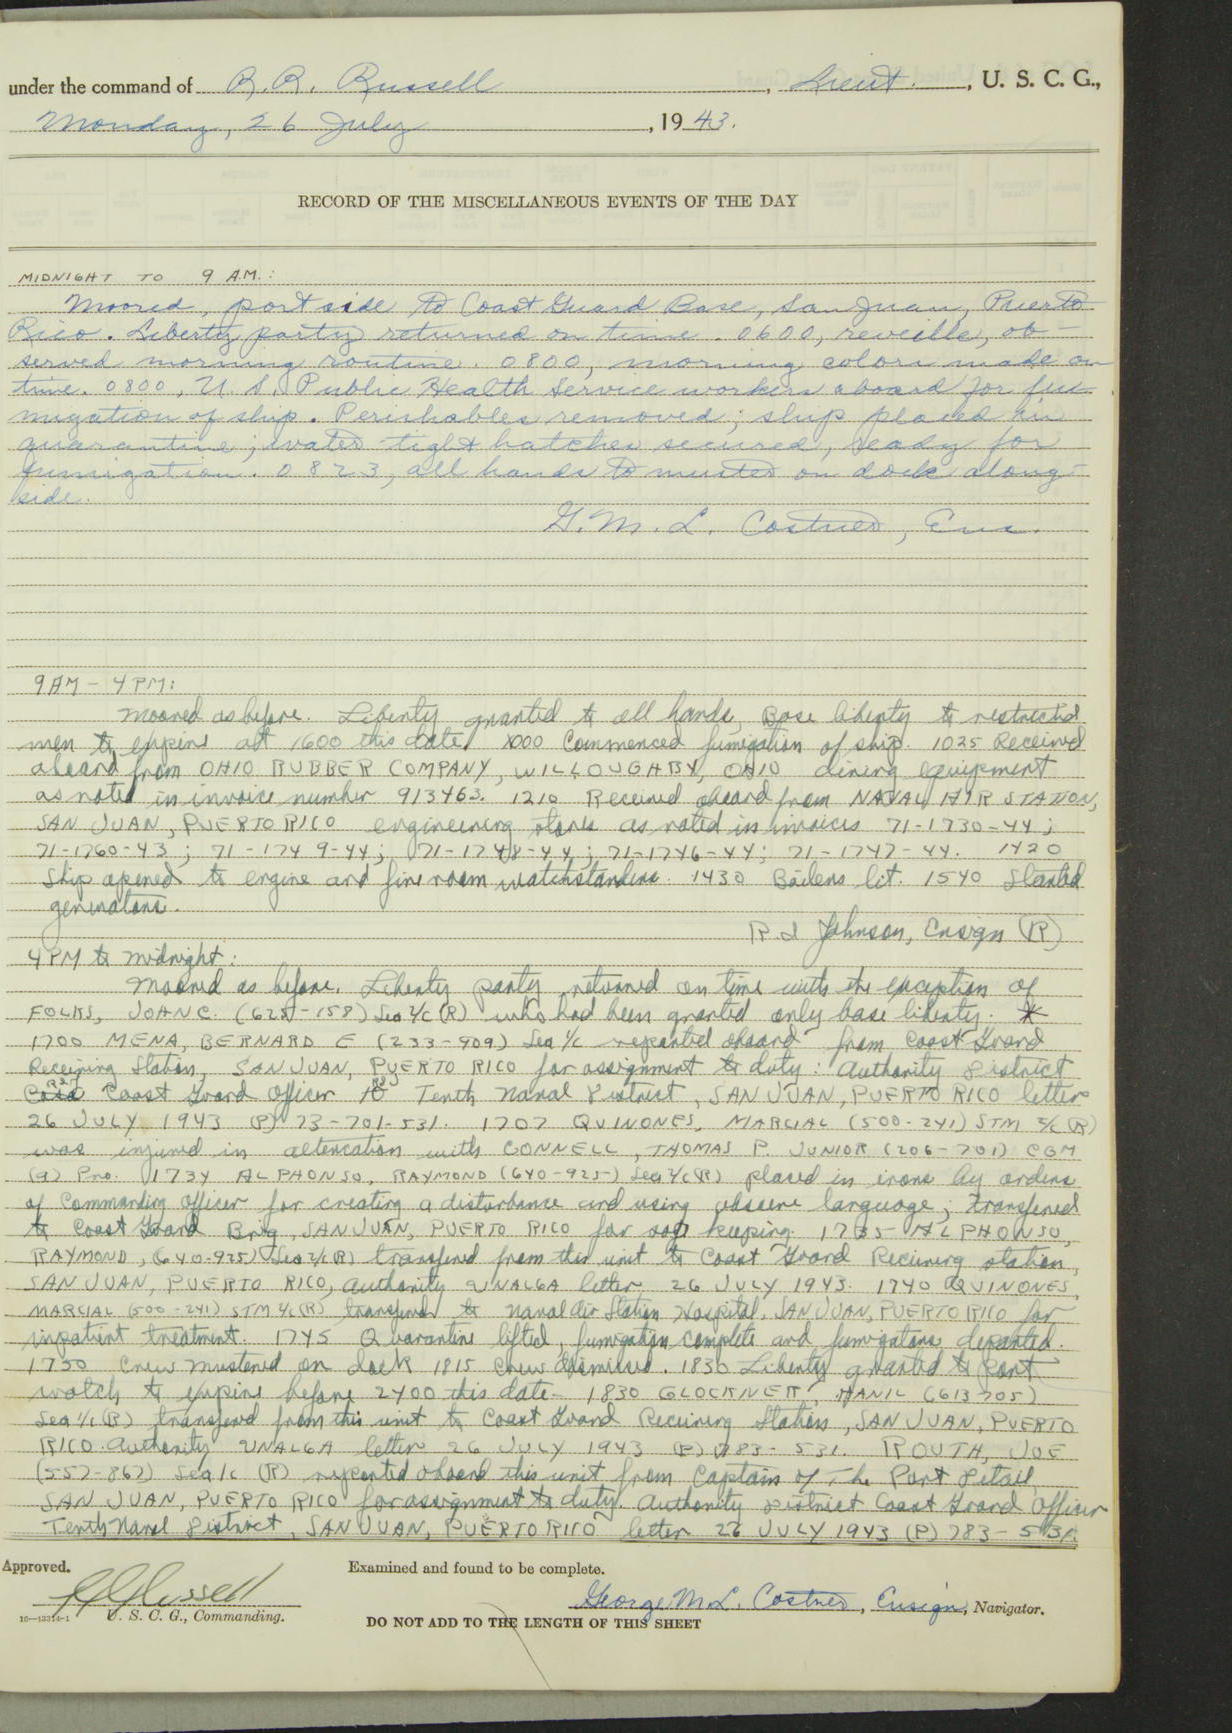 under the command of R. R. Russell, Lieut., U. S. C. G.,
Monday, 26 July, 1943.
RECORD OF THE MISCELLANEOUS EVENTS OF THE DAY
MIDNIGHT TO 9 A.M.:
Moored, port side to Coast Guard Base, San Juan, Puerto
Rico. Liberty party returned on time. 0600, reveille, ob-
served morning routine. 0800, morning colors made on
time. 0800, U. S. Public Health Service workers aboard for fu-
migation of ship. Perishables removed; ship placed in
quarantine; water tight hatches secured, ready for
fumigation. 0823, all hands to muster on dock along-
side.
G. M. L. Costner, Ens.
9AM - 4PM:
Moored as before. Liberty granted to all hands, Base liberty to restricted
men to expire at 1600 this date. 1000 Commenced fumigation of ship. 1025 Received
aboard from OHIO RUBBER COMPANY, WILLOUGHBY, OHIO dining equipment
as noted in invoice number 913463. 1210 Received aboard from NAVAL AIR STATION,
SAN JUAN, PUERTO RICO engineering stores as noted in invoices 71-1730-44;
71-1760-43; 71-1749-44; 71-1748-44; 71-1746-44; 71-1747-44. 1420
Ship opened to engine and fire room watchstanders. 1430 Boilers lit. 1540 Started
generators.
R J Johnson, Ensign (R)
4PM to Midnight:
Moored as before. Liberty party returned on time with the exception of
FOLKS, JOHN C. (625-158) Sea 2/c (R) who had been granted only base liberty. *
1700 MENA, BERNARD E (233-909) Sea 1/c reported aboard from Coast Guard
Receiving Station, SAN JUAN, PUERTO RICO for assignment to duty: Authority District
Coast Guard Officer Tenth Naval District, SAN JUAN, PUERTO RICO letter
26 JULY 1943 (P) 73-701-531. 1707 QUINONES, MARCIAL (500-241) STM 2/c (R)
was injured in altercation with CONNELL, THOMAS P. JUNIOR (206-701) CGM
(a) Pro. 1734 ALPHONSO, RAYMOND (640-925) Sea 2/c (R) placed in irons by orders
of Commanding Officer for creating a disturbance and using obscene language; transferred
to Coast Guard Brig, SAN JUAN, PUERTO RICO for safe keeping. 1735 ALPHONSO,
RAYMOND, (640-925) Sea 2/c (R) transferred from this unit to Coast Guard Receiving station,
SAN JUAN, PUERTO RICO, authority UNALGA letter 26 JULY 1943. 1740 QUINONES,
MARCIAL (500-241) STM 2/c (R) transferred to Naval Air Station Hospital, SAN JUAN, PUERTO RICO for
inpatient treatment. 1745 Quarantine lifted, fumigation complete and fumigators departed.
1750 Crew mustered on dock 1815 crew dismissed. 1830 Liberty granted to port
watch to expire before 2400 this date. 1830 GLOCKNER, (613-705)
Sea 1/c (R) transferred from this unit to Coast Guard Receiving Station, SAN JUAN, PUERTO
RICO. Authority UNALGA letter 26 JULY 1943 (P) 783-531. ROUTH, JOE
(557-867) Sea 1/c (R) reported aboard this unit from Captain of The Port Detail,
SAN JUAN, PUERTO RICO for assignment to duty. Authority District Coast Guard Officer
Tenth Naval District, SAN JUAN, PUERTO RICO letter 26 JULY 1943 (P) 783-531.
Approved.
Examined and found to be complete.
R R Russell
George M. L. Costner, Ensign, Navigator.
16-13314-1 U. S. C. G., Commanding.
DO NOT ADD TO THE LENGTH OF THIS SHEET